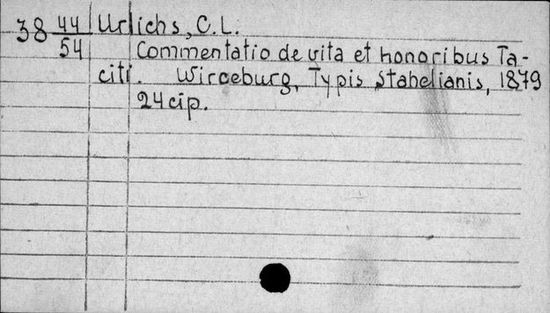 38 44 Urlichs, C. L.
54 Commentatio de vita et honoribus Ta-
citi. Wirceburg, Typis Stahelianis, 1879
24 cip.